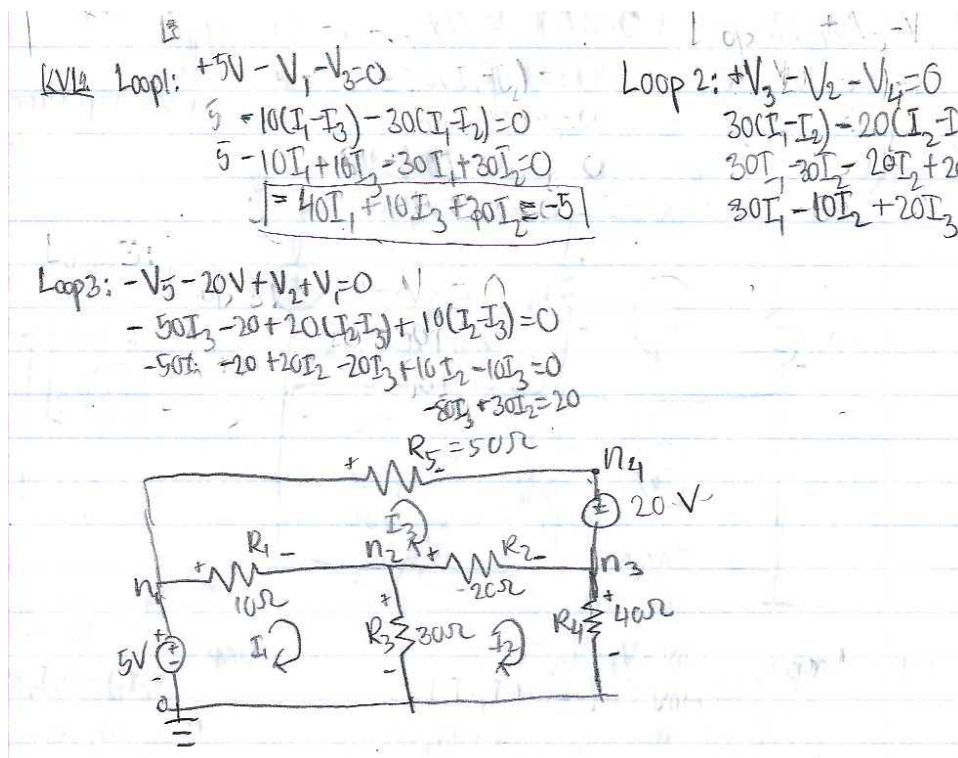 KVL: Loop1: +5V - V₁ - V₃=0
5 - 10(I₁-I₃) - 30(I₁-I₂)=0
5 - 10I₁+10I₃ - 30I₁+30I₂=0
= 40I₁ + 10I₃ + 30I₂ = -5
Loop 2: +V₃ - V₂ - V₄=0
30(I₁-I₂) - 20(I₂-I
30I₁ - 30I₂ - 20I₂ + 20
30I₁ - 10I₂ + 20I₃
Loop3: - V₅ - 20V + V₂ + V₁=0
- 50I₃ - 20 + 20(I₂-I₃) + 10(I₂-I₃)=0
-50I -20 +20I₂ -20I₃ +10I₂ -10I₃=0
-80I₃ +30I₂=20
R₅ = 50Ω
+ -
n4
+
20 V
I₃
R₁ n2 R₂
+ - + -
n3
n1
10Ω
20Ω
+ +
R₃ 30Ω
R₄ 40Ω
I₁ I₂
5V
+
-
- -
0